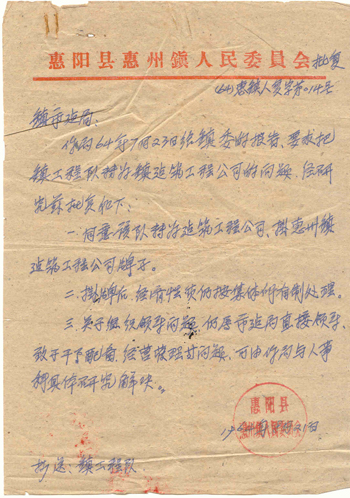 惠阳县惠州镇人民委員会批复
(64)惠镇人员字第014号
镇市建局:
你局64年7月23日给镇委的报告,要求把
镇工程队转为镇建筑工程公司的问题,经研
究兹批复如下:
一、同意该队转为建筑工程公司,掛惠州镇
建筑工程公司牌子。
二、掛牌后,经济性质仍按集体所有制处理。
三、关于组织领导问题,仍属市建局直接领导,
干下配备,经营管理等问题,可由你局与人事
具体研究解决。
惠阳县
惠州镇人民委員会
抄送:镇工程队